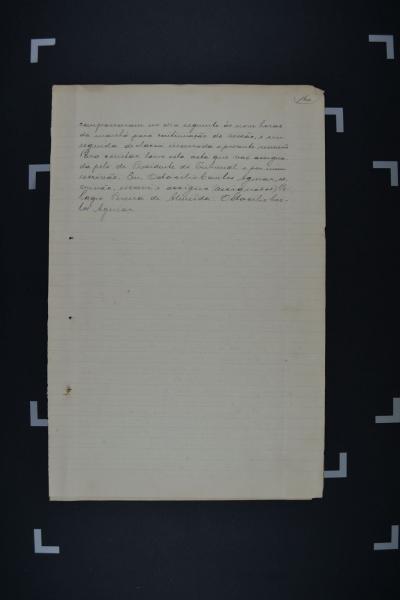 compareceram no dia seguinte às nove horas
da manhã para continuação da sessão, e em
seguida declarou encerrada a presente reunião
Para constar lavro esta acta que vae assigna
da pelo dr Presidente do Tribunal e por mim
escrivão. Eu, Octacilio Carlos Aguiar, es
crivão, escrevi e assigno (assignados)
Pereira de Almeida. Octacilio Car
los Aguiar